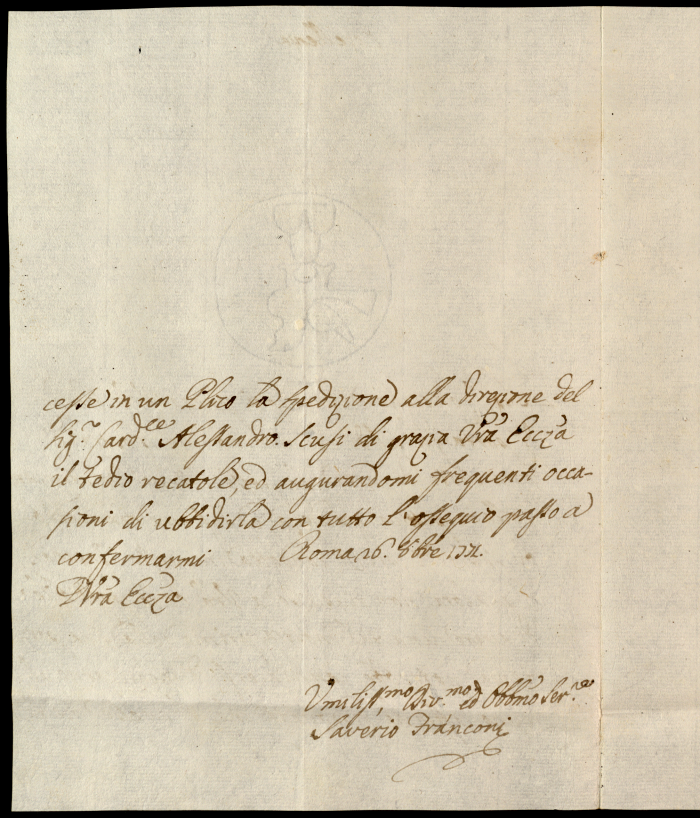 cesse in un Plico la spedizione alla direzione del
Sig.r Card.le Alessandro. Scusi di grazia Vrã Ecc̃za
il tedio recatole, ed augurandomi frequenti occa-
sioni di ubbidirla con tutto l'ossequio passo a
confermarmi Roma 26. 8bre
D Vrã Ecc̃za
Umiliss.mo Div.mo ed Obb̃mo Ser.re
Saverio Franconi